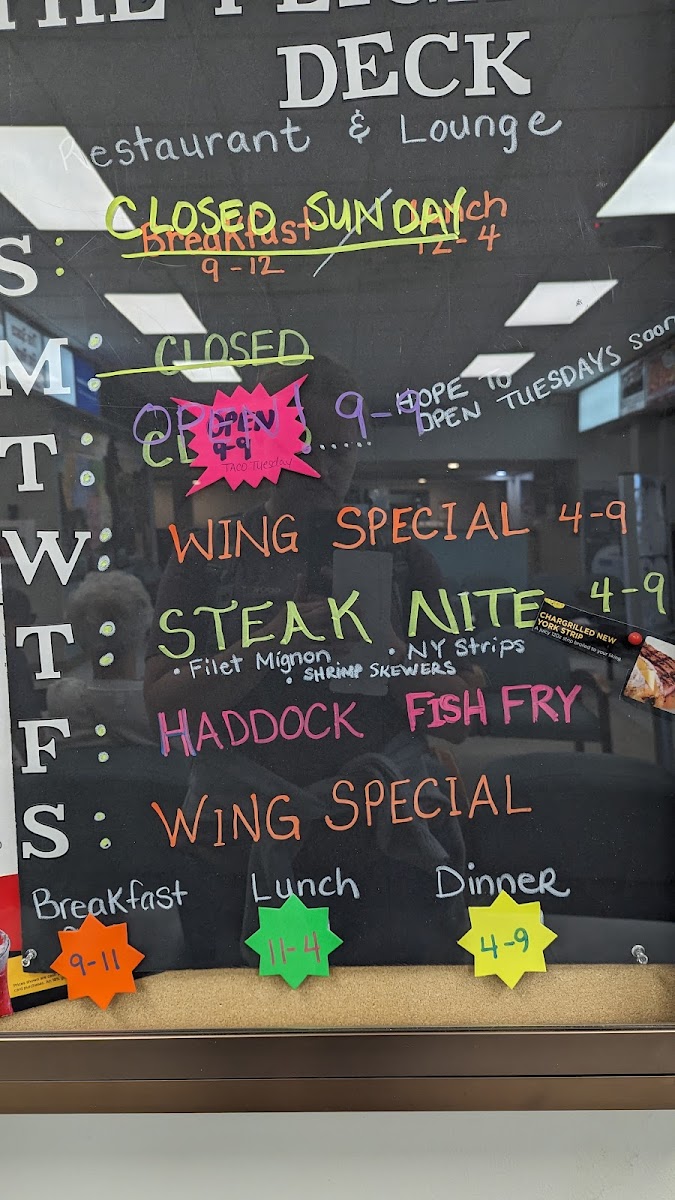 THE FLIGHT
DECK
Restaurant & Lounge
S: CLOSED SUNDAY
Breakfast / Lunch
9-12 12-4
M: CLOSED
T: OPEN! 9-9 HOPE TO
OPEN TUESDAYS soon
OPEN
9-9
TACO Tuesday
W: WING SPECIAL 4-9
T: STEAK NITE 4-9
• Filet Mignon • NY Strips
• SHRIMP SKEWERS
CHARGRILLED NEW
YORK STRIP
F: HADDOCK FISH FRY
S: WING SPECIAL
Breakfast Lunch Dinner
9-11 11-4 4-9